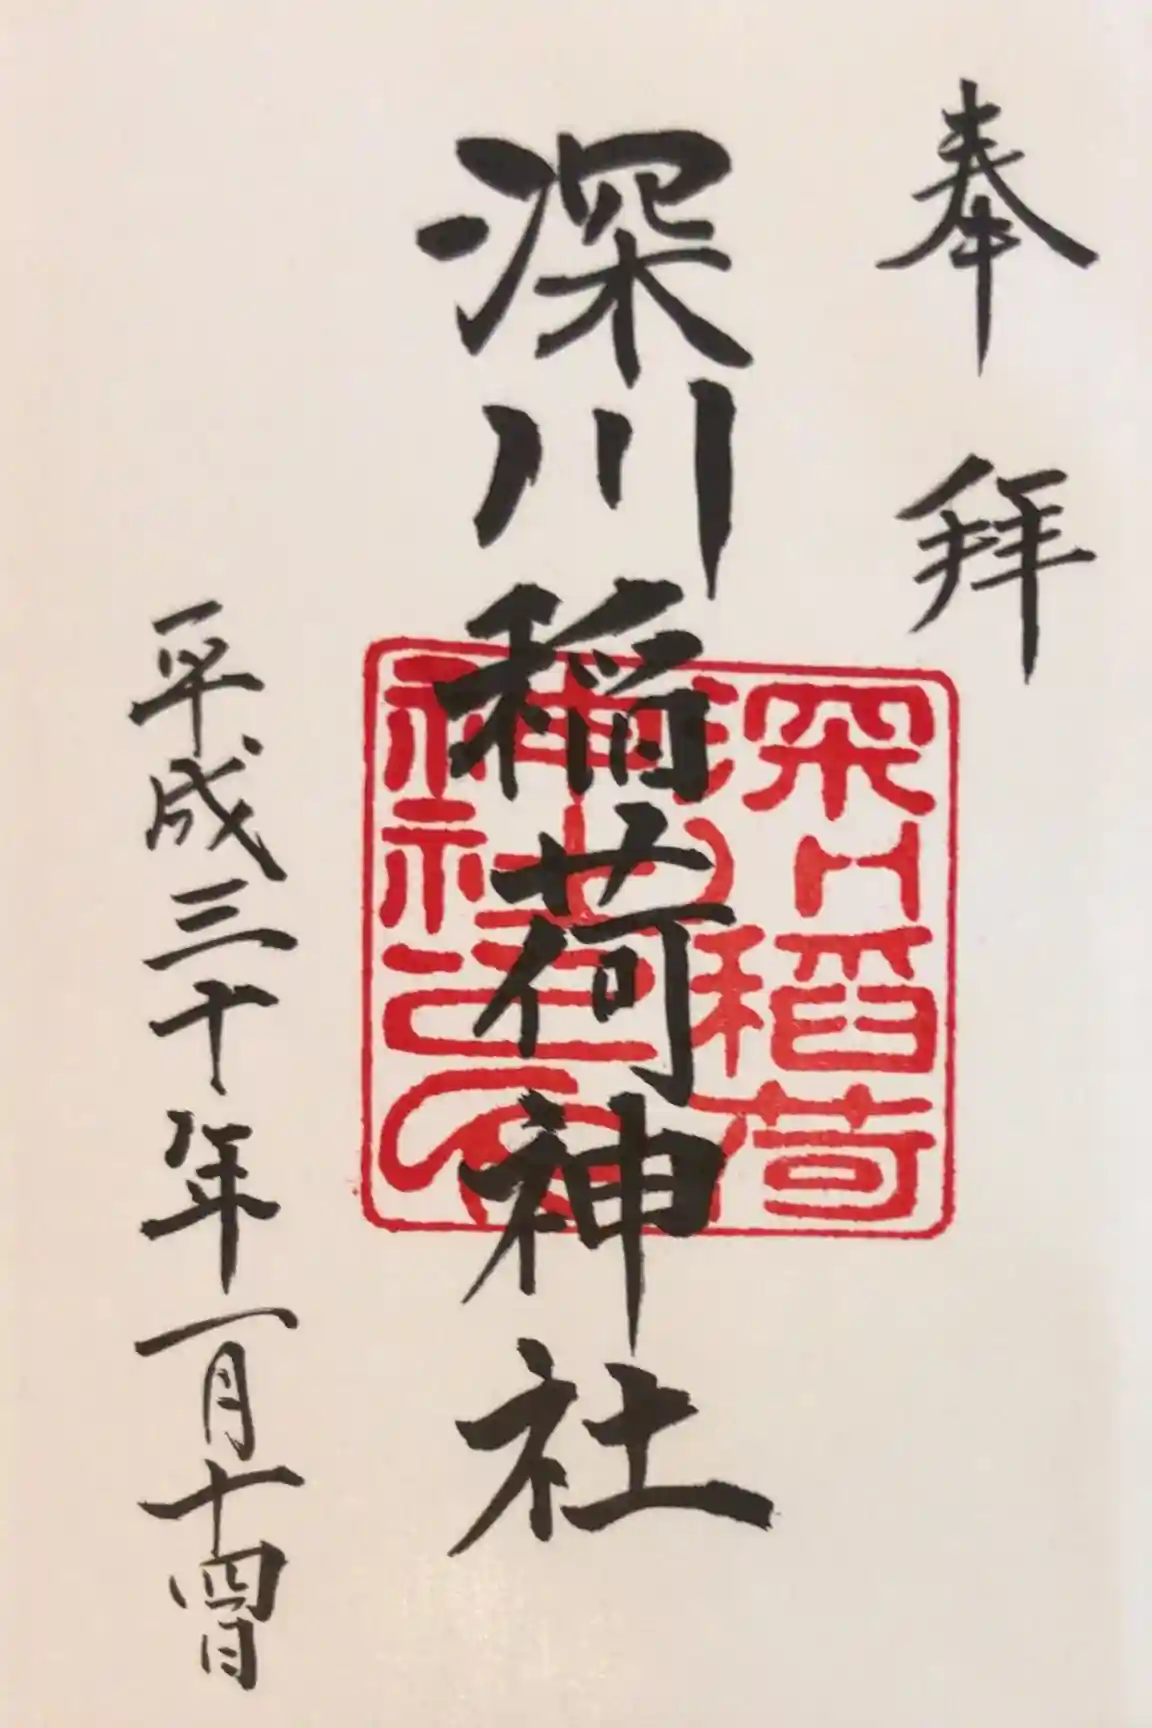 奉拝
深川稲荷神社
平成三十年一月十四日
深川稲荷
神社